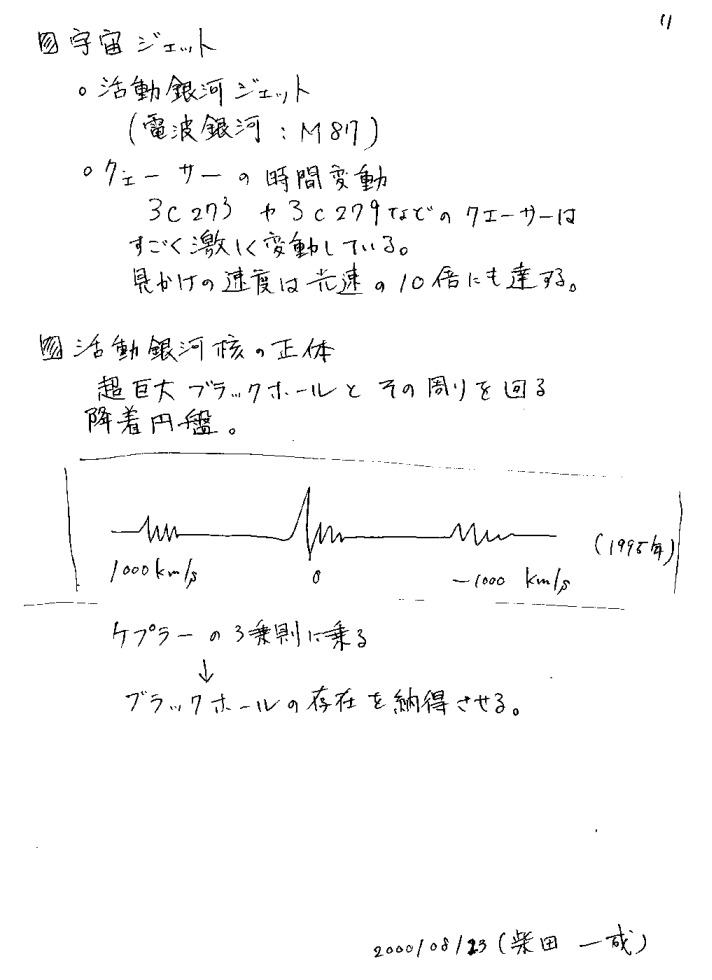 11
図 宇宙ジェット
○ 活動銀河ジェット
(電波銀河：M87)
○ クェーサーの時間変動
3C273や3C279などのクエーサーは
すごく激しく変動している。
見かけの速度は光速の10倍にも達する。
図 活動銀河核の正体
超巨大ブラックホールとその周りを回る
降着円盤。
(1995年)
1000km/s 0 -1000 km/s
ケプラーの3乗則に乗る
↓
ブラックホールの存在を納得させる。
2000/08/23(柴田 一成)